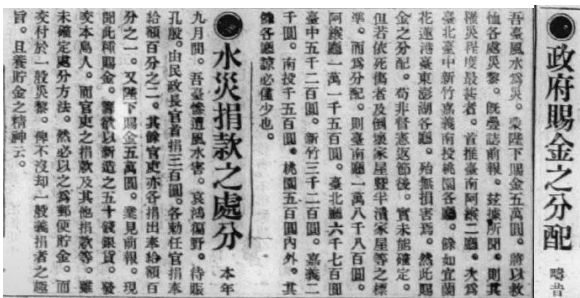 ●政府賜金之分配 疇昔
吾臺風水為災。蒙陛下賜金五萬圓。將以救
恤各處災黎。既疊誌前報。茲據所聞。則其
罹災程度最甚者。首推臺南阿緱二廳。次為
臺北臺中新竹嘉義南投桃園各廳。餘如宜蘭
花蓮港臺東澎湖各廳。殆無損害焉。然此賜
金之分配。苟非督憲返節後。實未能確定。
但若依死傷者及倒壞家屋曁半潰家屋等之標
準。而為分配。則臺南廳一萬八千八百圓。
阿緱廳一萬一千五百圓。臺北廳六千七百圓
臺中五千二百圓。新竹三千二百圓。嘉義二
千圓。南投千五百圓。桃園五百圓內外。其
餘各廳諒必僅少也。
●水災捐款之處分 本年
九月間。吾臺慘遭風水害。哀鴻傷野。待賑
孔殷。由民政長官首捐三百圓。各勅任官捐奉
給額百分之二。其餘官吏亦各捐出奉給額百
分之一。又陛下賜金五萬圓。業見前報。現
聞此種賜金。籌欲以新造之五十錢銀貨。發
交本島人。而官吏之捐款及其他捐款等。雖
未確定處分方法。然必以之為郵便貯金。而
交付於一般災黎。俾不沒却一般義捐者之趣
旨。且養貯金之精神云。